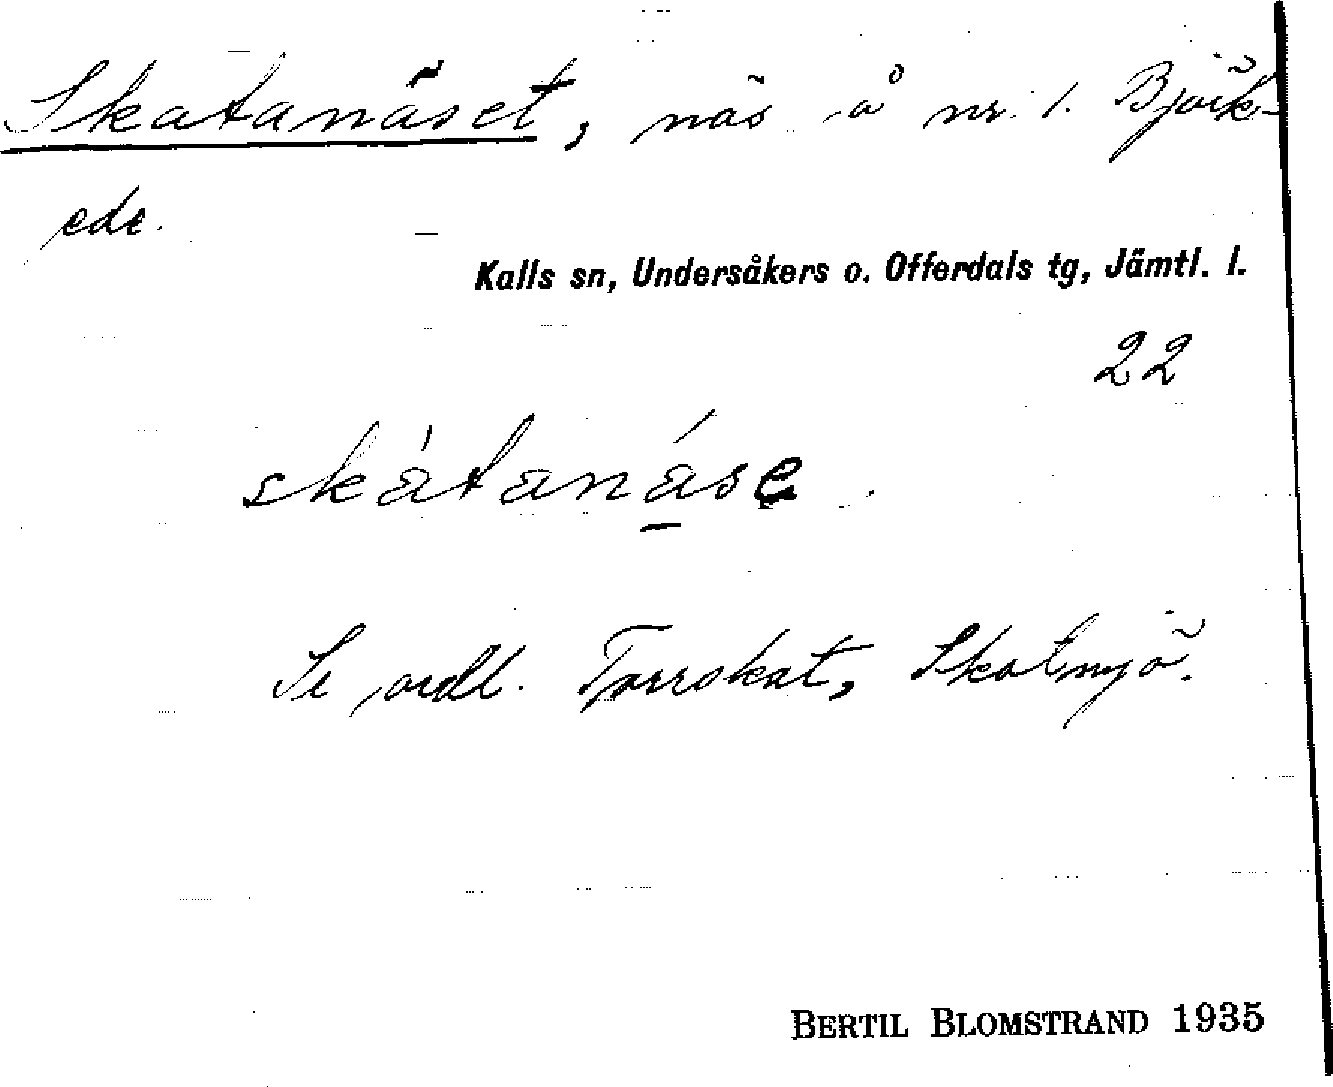 Skatanäset, näs å nr. 1. Björk-
ede.
Kalls sn, Undersåkers o. Offerdals tg, Jämtl. l.
22
skàtanáse
Se ordl. Torrskat, Skatmyö.
BERTIL BLOMSTRAND 1935